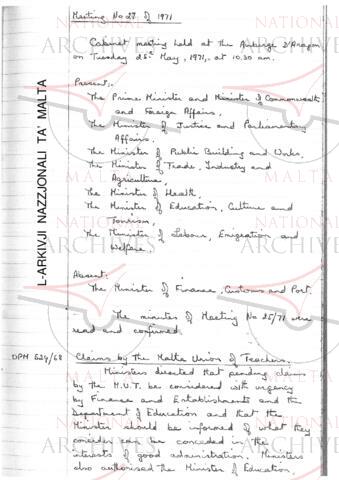 Meeting No 27 of 1971
Cabinet meeting held at the Auberge d'Aragon
on Tuesday 25th May, 1971, at 10.30 am.
Present:-
The Prime Minister and Minister of Commonwealth
and Foreign Affairs,
The Minister of Justice and Parliamentary
Affairs,
The Minister of Public Building and Works,
The Minister of Trade, Industry and
Agriculture,
The Minister of Health,
The Minister of Education, Culture and
Tourism,
The Minister of Labour, Emigration and
Welfare.
Absent:-
The Minister of Finance, Customs and Port.
The minutes of Meeting No 25/71 were
read and confirmed.
OPM 524/68 Claims by the Malta Union of Teachers.
Ministers directed that pending claims
by the M.U.T. be considered with urgency
by Finance and Establishments and the
Department of Education and that the
Minister should be informed of what they
consider can be conceded in the
interests of good administration. Ministers
also authorised the Minister of Education,
L-ARKIVJI NAZZJONALI TA' MALTA
NATIONAL
ARCHIVES
MALTA